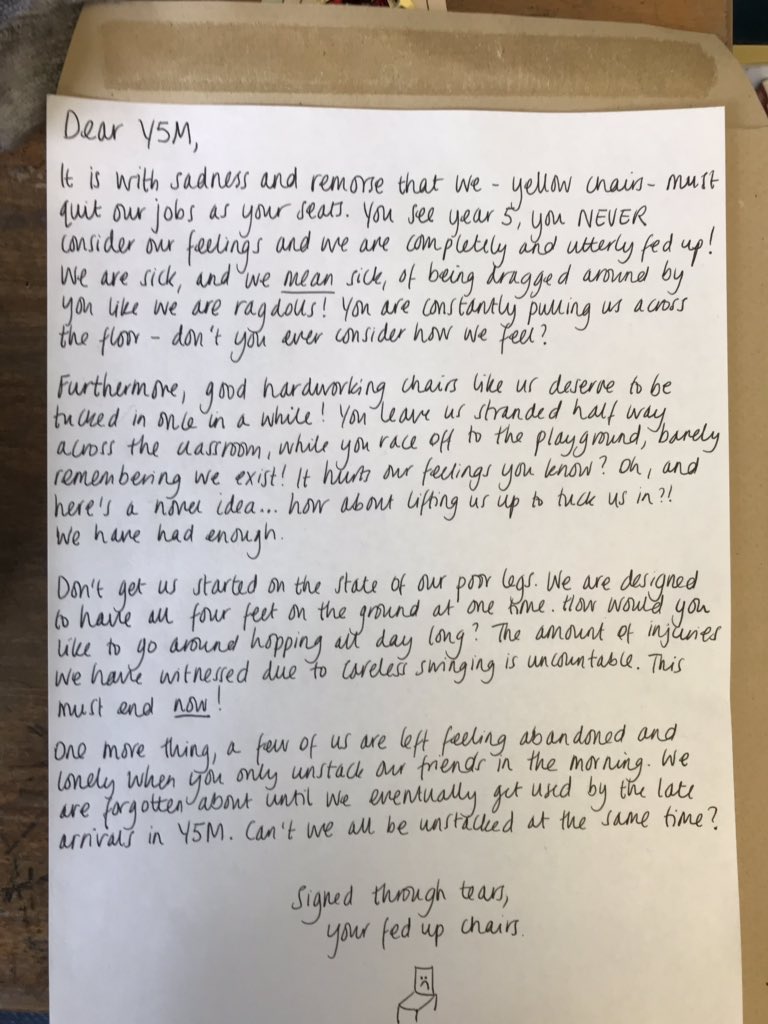 Dear Y5M,
It is with sadness and remorse that we - yellow chairs - must
quit our jobs as your seats. You see year 5, you NEVER
consider our feelings and we are completely and utterly fed up!
We are sick, and we mean sick, of being dragged around by
you like we are ragdolls! You are constantly pulling us across
the floor - don't you ever consider how we feel?
Furthermore, good hardworking chairs like us deserve to be
tucked in once in a while! You leave us stranded half way
across the classroom, while you race off to the playground, barely
remembering we exist! It hurts our feelings you know? Oh, and
here's a novel idea... how about lifting us up to tuck us in?!
We have had enough.
Don't get us started on the state of our poor legs. We are designed
to have all four feet on the ground at one time. How would you
like to go around hopping all day long? The amount of injuries
we have witnessed due to careless swinging is uncountable. This
must end now!
One more thing, a few of us are left feeling abandoned and
lonely when you only unstack our friends in the morning. We
are forgotten about until we eventually get used by the late
arrivals in Y5M. Can't we all be unstacked at the same time?
Signed through tears,
your fed up chairs.